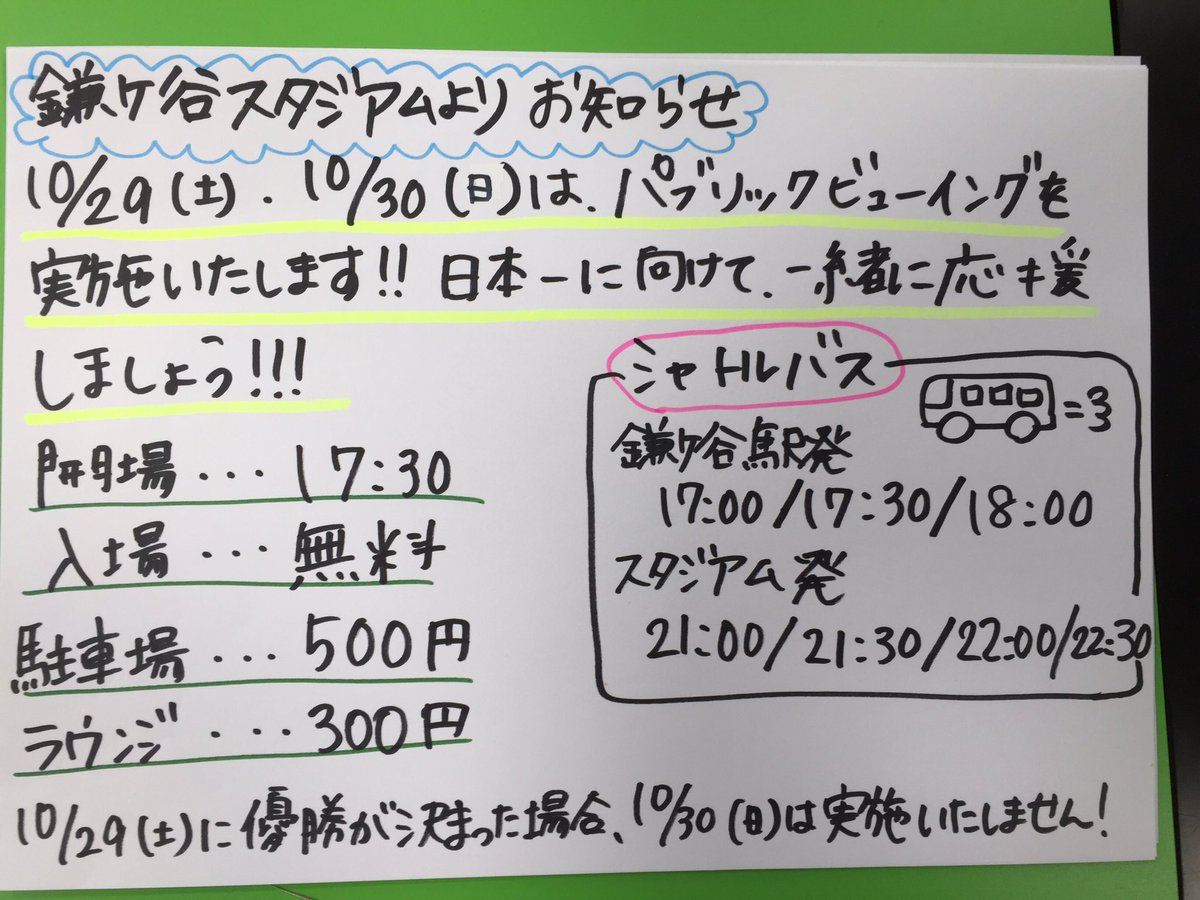 鎌ケ谷スタジアムより お知らせ
10/29(土)・10/30(日)は、パブリックビューイングを
実施いたします!! 日本一に向けて、一緒に応援
しましょう!!!
開場・・・17:30
入場・・・無料
駐車場・・・500円
ラウンジ・・・300円
シャトルバス
=3
鎌ケ谷駅発
17:00/17:30/18:00
スタジアム発
21:00/21:30/22:00/22:30
10/29(土)に優勝が決まった場合、10/30(日)は実施いたしません!